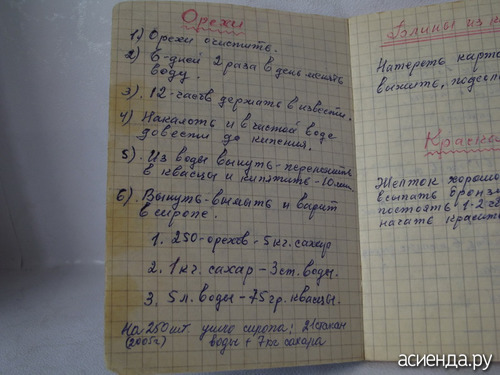 Орехи
1) Орехи очистить.
2) 6-дней 2 раза в день менять
воду.
3). 12-часов держать в извести.
4) Наколоть и в чистой воде
довести до кипения.
5). Из воды вынуть - переложить
в квасцы и кипятить - 10 мин.
6). Вынуть - вымыть и варить
в сиропе.
1. 250-орехов - 5 кг. сахар
2. 1 кг. сахар - 3 ст. воды.
3. 5 л. воды - 75 гр. квасцы.
На 250 шт ушло сиропа: 21 стакан
(2005г) воды + 7 кг сахара
Блины из
Натереть
выжить, подсол
Краска
Желток хорошо
всыпать бронз
постоять 1-2 ч
начать красить
асиенда.ру